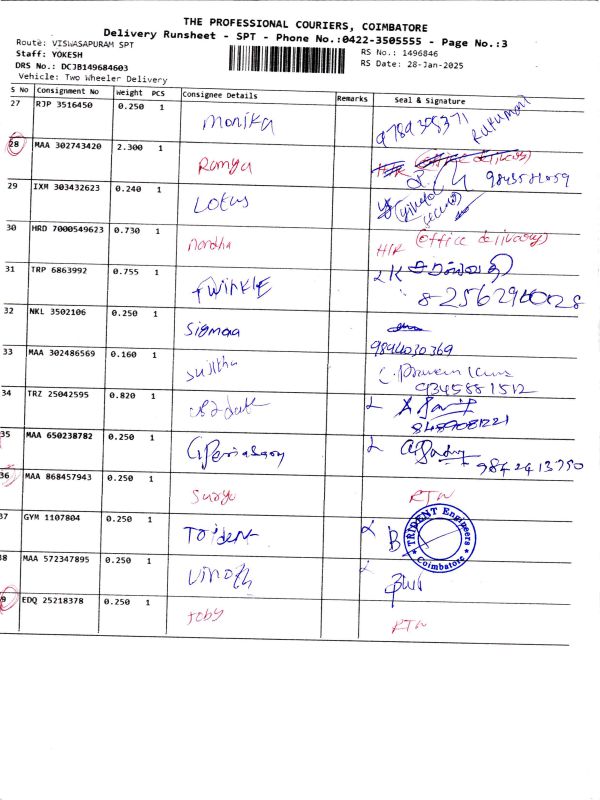 THE PROFESSIONAL COURIERS, COIMBATORE
Delivery Runsheet - SPT - Phone No.:0422-3505555 - Page No.:3
Route: VISWASAPURAM SPT
Staff: YOKESH
DRS No.: DCJB149684603
Vehicle: Two Wheeler Delivery
RS No.: 1496846
RS Date: 28-Jan-2025
S No Consignment No Weight PCS Consignee Details Remarks Seal & Signature
27 RJP 3516450 0.250 1 Monika
28 MAA 302743420 2.300 1 Ramya
29 IXM 303432623 0.240 1 Lotus
30 HRD 7000549623 0.730 1 H/R (office delivary)
31 TRP 6863992 0.755 1 TWINKLE
32 NKL 3502106 0.250 1 Sigmaa
9894030369
33 MAA 302486569 0.160 1 Sujitha
9345881512
34 TRZ 25042595 0.820 1
35 MAA 650238782 0.250 1 G.Periasamy
9842413750
36 MAA 868457943 0.250 1 Surya RTN
37 GYM 1107804 0.250 1 Trident
TRIDENT Engineers
Coimbatore
38 MAA 572347895 0.250 1 Vinoth
39 EDQ 25218378 0.250 1 Toby RTN